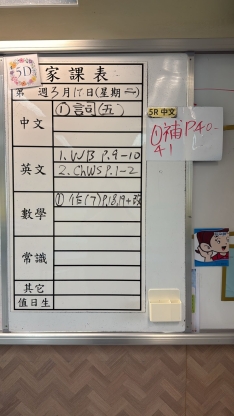 5D
家課表
第 週3月17日(星期二)
中文
①詞(五)
5R 中文
①補P40-
41
英文
1. WB p.9-10
2. ChWS p.1-2
數學
①作(7)P.18,19+改
常識
其它
值日生